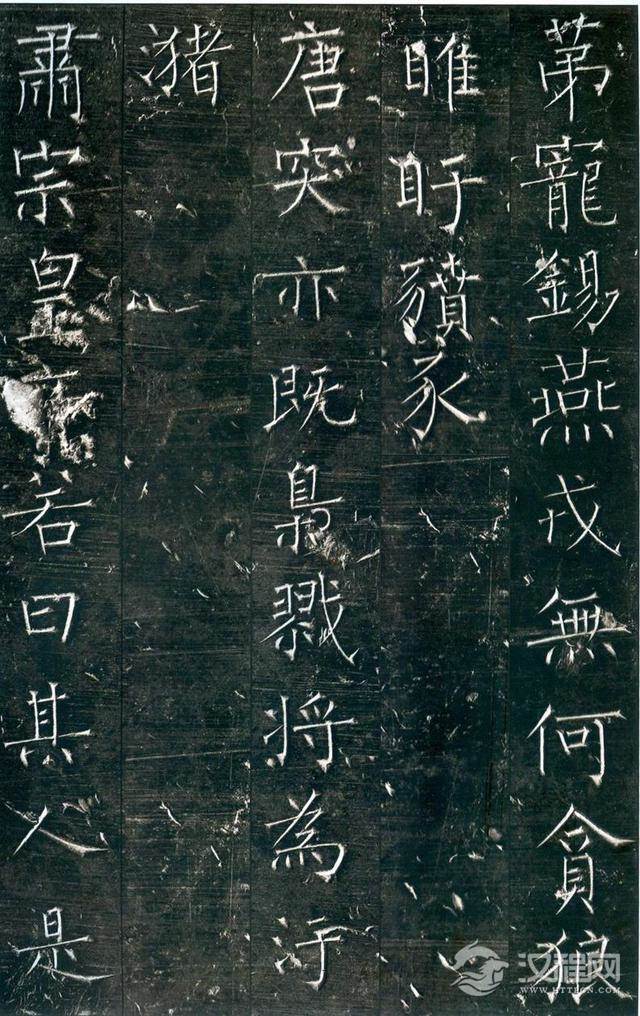 苐寵錫燕戎無何貪狼
睢盱豶豕
唐突亦既梟戮将為汙
潴
肅宗皇帝若曰其人是
汉程网
WWW.HTTPCN.COM